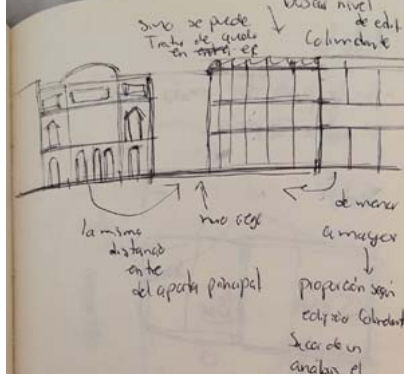 buscar nivel
de edif.
Colindante
Sino se puede
Trate de quede
en
la misma
distancia
entre
del aparta principal
muro ciego
de menor
a mayor
proporción según
edificio Colindante
Sacar de un
análisis el